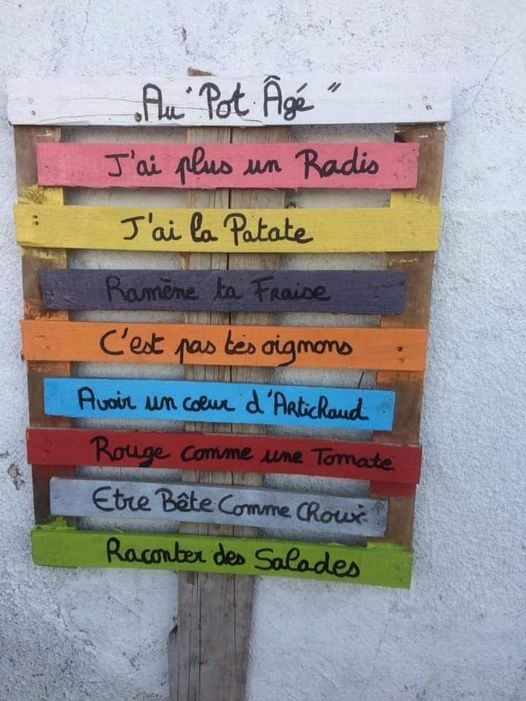 Au "Pot Âgé"
J'ai plus un Radis
J'ai la Patate
Ramène ta Fraise
C'est pas tes oignons
Avoir un coeur d'Artichaud
Rouge comme une Tomate
Etre Bête Comme Choux
Raconter des Salades